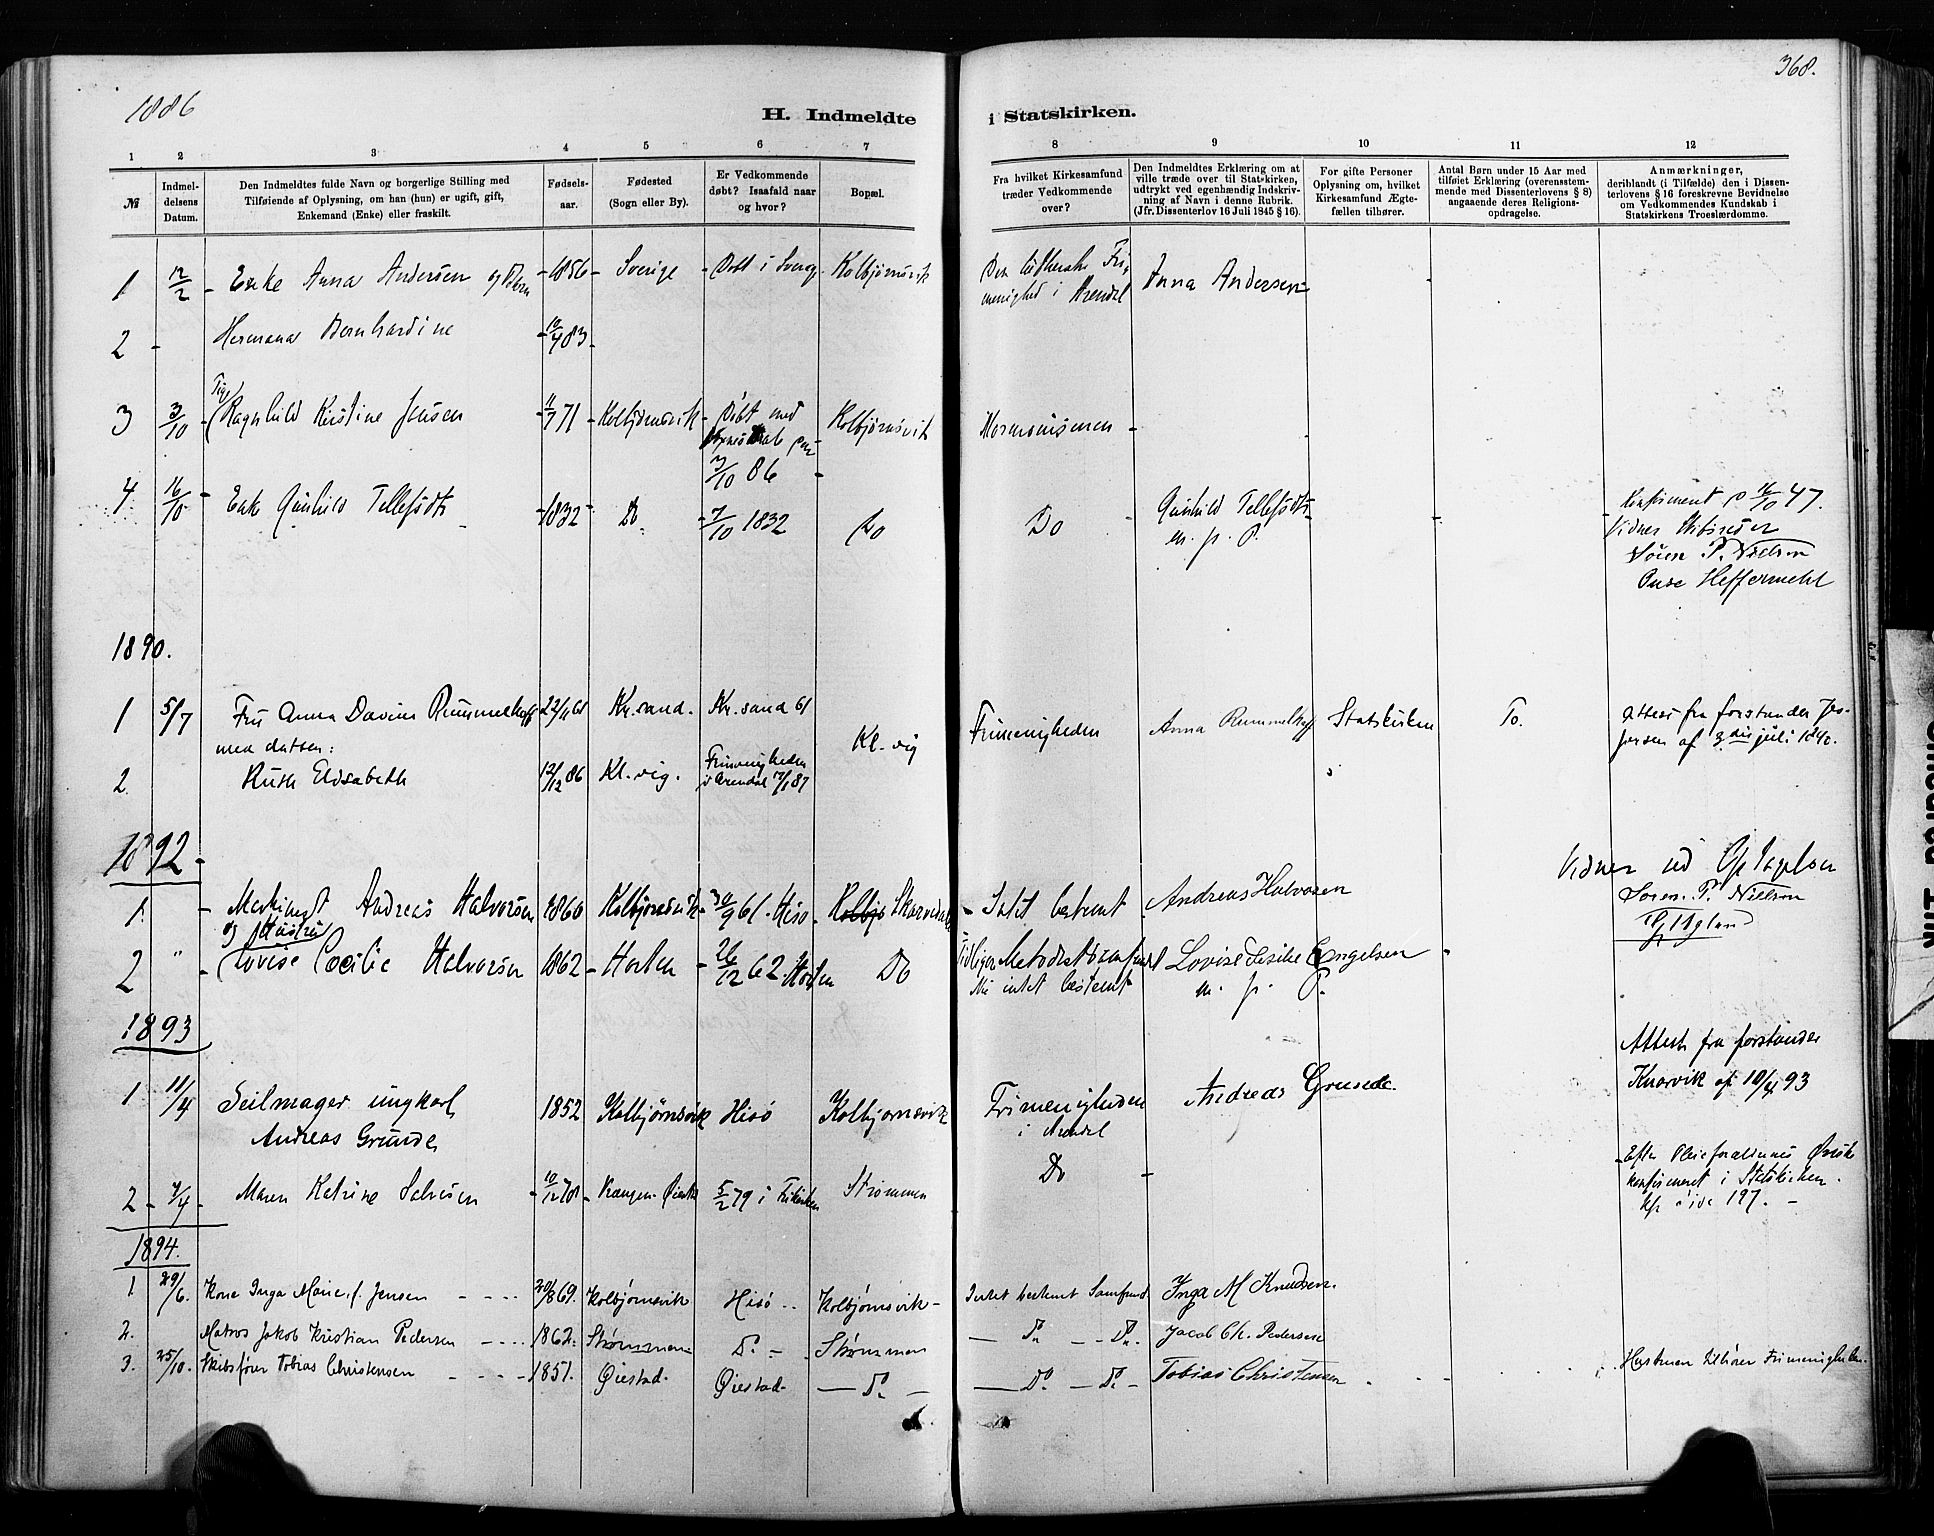 1886
368.
H. Indmeldte i Statskirken.
1 2 3 4 5 6 7 8 9 10 11 12
№
Indmel-
delsens
Datum.
Den Indmeldtes fulde Navn og borgerlige Stilling med
Tilføiende af Oplysning, om han (hun) er ugift, gift,
Enkemand (Enke) eller fraskilt.
Fødsels-
aar.
Fødested
(Sogn eller By).
Er Vedkommende
døbt? Isaafald naar
og hvor?
Bopæl.
Fra hvilket Kirkesamfund
træder Vedkommende
over?
Den Indmeldtes Erklæring om at
ville træde over til Statskirken,
udtrykt ved egenhændig Indskriv-
ning af Navn i denne Rubrik.
(Jfr. Dissenterlov 16 Juli 1845 § 16).
For gifte Personer
Oplysning om, hvilket
Kirkesamfund Ægte-
fællen tilhører.
Antal Børn under 15 Aar med
tilføiet Erklæring (overensstem-
mende med Dissenterlovens § 8)
angaaende deres Religions-
opdragelse.
Anmærkninger,
deriblandt (i Tilfælde) den i Dissen-
terlovens § 16 foreskrevne Bevidnelse
om Vedkommendes Kundskab i
Statskirkens Troeslærdomme.
1 12/2 - Enke Anna Andersen og Børn - 1856 - Sverige - Døbt i Sverig - Kolbjørnsvik
Den lutherske Fri-
menighed i Arendal
Anna Andersen
2 - Hermana Bernhardine - 10/4 83 -
3 3/10 - Pige Ragnhild Kirstine Jensen - 11/7 71 - Kolbjørnsvik - Døbt med
3/10 86 - Kolbjørnsvik
Mormonismen -
4 16/10 - Enke Gunhild Tellefsdtr - 1832 - Do - 7/10 1832 Do
Do - Gunhild Tellefsdtr
m. p. P.
- 16/10 47.
Vidner
Søren P. Nielsen
Heffermehl
1890.
1 5/7 Fru Anna Davine Rummelhoff 22/11 61 Kr.sand. Kr.sand 61
med datter:
Kl.vig
Frimenigheden Anna Rummelhoff Statskirken To.
Attest fra forstander
af 3die juli 1890.
2. Ruth Elisabeth 12/12 86 Kl.vig. Frimenigheden
i Arendal 87
1892 -
1. - Andreas Halvorsen 1860 Kolbjørnsvik - 30/9 61. Hisø -
- Intet bestemt - Andreas Halvorsen
Vidner ved Optagelsen
Søren P. Nielsen
og Hustru
2 " - Lovise Cecilie Halvorsen 1862 - Horten - 26/12 62. Horten Do
Tidligere Metodistsamfund
Nu intet bestemt
Lovise Engelsen -
m. p. P.
1893
1 11/4 Seilmager ungkarl
Andreas Grunde
1852 Kolbjørnsvik Hisø Kolbjørnsvik
Frimenigheden
i Arendal
Andreas Grunde.
Attest fra forstander
Knarvik af 10/4 93
2 - 7/4 - Maren Katrine Salvesen - 10/12 78 - Øiestad 5/2 79 i Frikirken Strømmen
Do -
- Efter Pleieforældrenes Ønske
konfirmeret i Statskirken.
197. -
1894.
1. 29/6. Kone Inga Marie, f. Jensen - - - - 20/8 69. Kolbjørnsvik Hisø - - Kolbjørnsvik -
Intet bestemt Samfund Inga M Knudsen.
2. Matros Jakob Kristian Pedersen - - - - 1862. Strømmen Do. - Strømmen
- Do. - - Do. Jacob Ch. Pedersen
3. 25/10. Skibsfører Tobias Christensen - - - - 1851. Øiestad. Øiestad. - Do. -
- Do. - Do. - Tobias Christensen
Hustruen tilhører Frimenigheden.